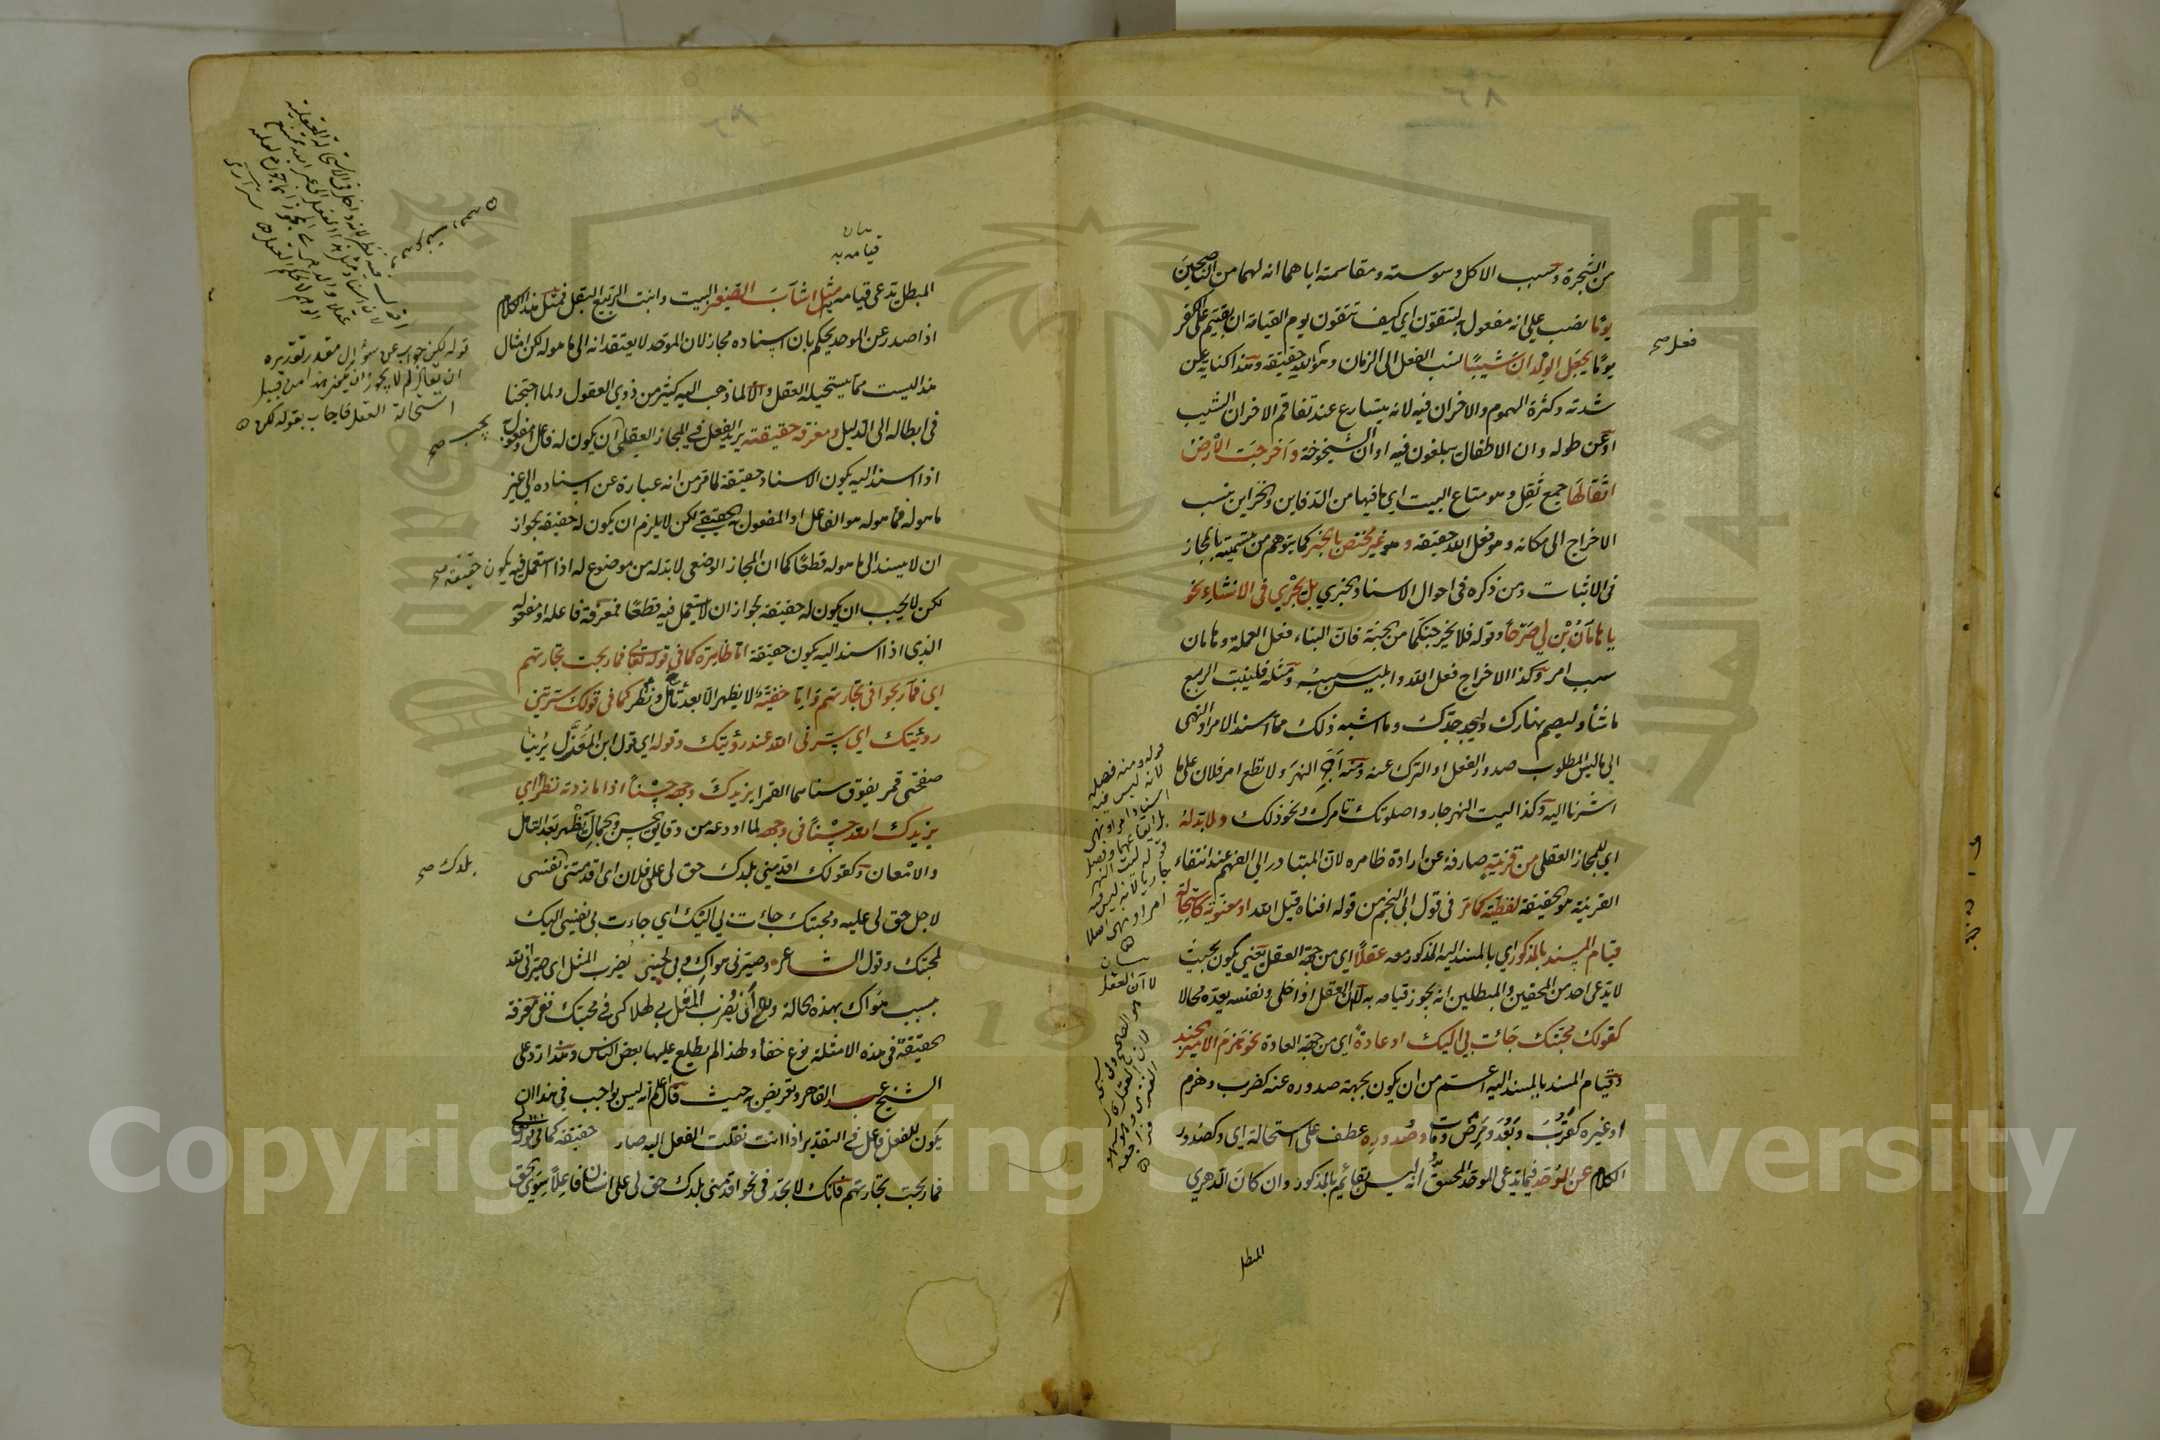 من الشجرة وسبب الاكل وسوسته ومقاسمته اياهما انه لهما من الناصحين
يومًا نصب على انه مفعول به لتتقون اي كيف تتقون يوم القيامة ان بقيتم على الكفر
يومًا يجعل الولدان شيبًا نسب الفعل الى الزمان وهو لله حقيقة وهذا كناية عن
شدته وكثرة الهموم والاحزان فيه لانه يتسارع عند تفاقم الاحزان الشيب
او عن طوله وان الاطفال يبلغون فيه اوان الشيخوخة واخرجت الارض
اثقالها جمع ثقل وهو متاع البيت اي ما فيها من الدفاين والخزاين نسب
الاخراج الى مكانه وهو فعل الله حقيقة وهو غير مختص بالخبر كما يتوهم من تسميته بالمجاز
في الاثبات ومن ذكره في احوال الاسناد الخبري بل يجري في الانشاء نحو
يا هامان ابن لي صرحًا وقوله فلا يخرجنكما من الجنة فان البناء فعل العملة وهامان
سبب امر وكذا الاخراج فعل الله وابليس سببه ومثله فلينبت الربيع
ما شاء وليصم نهارك وليجد جدك وما اشبه ذلك مما اسند الامر او النهي
الى ما ليس المطلوب صدور الفعل او الترك عنه ومنه اجر النهر ولا تطع امر فلان على ما
اشرنا اليه وكذا ليت النهر جار واصلوتك تامرك ونحو ذلك ولا بد له
اي للمجاز العقلي من قرينة صارفة عن ارادة ظاهره لان المتبادر الى الفهم عند انتفاء
القرينة هو الحقيقة لفظية كما مر في قول ابي النجم من قوله افناه قيل الله او معنوية كاستحالة
قيام المسند بالمذكور اي بالمسند اليه المذكور معه عقلًا اي من جهة العقل يعني يكون بحيث
لا يدعي احد من المحقين والمبطلين انه يجوز قيامه به لان العقل اذا خلى ونفسه يعده محالا
كقولك محبتك جاءت بي اليك او عادة اي من جهة العادة نحو هزم الامير الجند
وقيام المسند بالمسند اليه اعم من ان يكون بجهة صدوره عنه كضرب وهزم
او غيره كقرب وبعد ومرض ومات وصدوره عطف على استحالة اي وكصدور
الكلام عن الموحد فيما يدعي الموحد المحق انه ليس بقائم بالمذكور وان كان الدهري
المبطل
فعل صح
قوله ومنه فصله
لانه ليس فيه
لان العقل
بيان
قيامه به
المبطل يدعي قيامه به مثل اشاب الصغير البيت وانبت الربيع البقل فمثل هذا الكلام
اذا صدر عن الموحد يحكم بان اسناده مجاز لان الموحد لا يعتقد انه الى ما هو له لكن امثال
هذا ليست مما يستحيله العقل والا لما ذهب اليه كثير من ذوي العقول ولما احتجنا
في ابطاله الى الدليل ومعرفة حقيقته يريد الفعل في المجاز العقلي ان يكون له فاعل او مفعول به
اذا اسند اليه يكون الاسناد حقيقة لما مر من انه عبارة عن اسناده الى غير
ما هو له فما هو له هو الفاعل او المفعول به الحقيقي لكن لا يلزم ان يكون له حقيقة لجواز
ان لا يسند الى ما هو له قطعًا كما ان المجاز الوضعي لا بد له من موضوع له اذا استعمل فيه يكون حقيقة صح
لكن لا يجب ان يكون له حقيقة لجواز ان لا يستعمل فيه قطعًا فمعرفة فاعله او مفعوله
الذي اذا اسند اليه يكون حقيقة اما ظاهرة كما في قوله تعالى فما ربحت تجارتهم
اي فما ربحوا في تجارتهم واما خفية لا يظهر الا بعد تامل ونظر كما في قولك سرتني
رؤيتك اي سرني الله عند رؤيتك وقوله اي قول ابن المعذل يرينا
صفحتي قمر يفوق سناهما القمرا يزيدك وجهه حسنًا اذا ما زدته نظرًا اي
يزيدك الله حسنًا في وجهه لما اودعه من دقايق الحسن والجمال يظهر بعد التامل
والامعان وكقولك اقدمني بلدك حق لي على فلان اي اقدمتني نفسي
لاجل حق لي عليه ومحبتك جاءت بي اليك اي جاءت بي نفسي اليك
لمحبتك وقول الشاعر وصيرني هواك وبي لحيني يضرب المثل اي صيرني الله
بسبب هواك بهذه الحالة وهي اني يضرب المثل بي لهلاكي في محبتك ففي معرفة
الحقيقة في هذه الامثلة نوع خفاء ولهذا لم يطلع عليها بعض الناس وهذا رد على
الشيخ عبد القاهر وتعريض به حيث قال اعلم انه ليس بواجب في هذا ان
يكون للفعل فاعل في التقدير اذا انت نقلت الفعل اليه صار حقيقة كما في قوله
فما ربحت تجارتهم فانك لا تجد في نحو اقدمني بلدك حق لي على انسان فاعلًا سوى الحق
قوله لكن جواب عن سؤال مقدر تقديره
ان يقال لم لا يجوز ان يكون هذا من قبيل
استحالة العقل فاجاب بقوله لكن
يجب صح
بلدك صح
Copyright © King Saud University